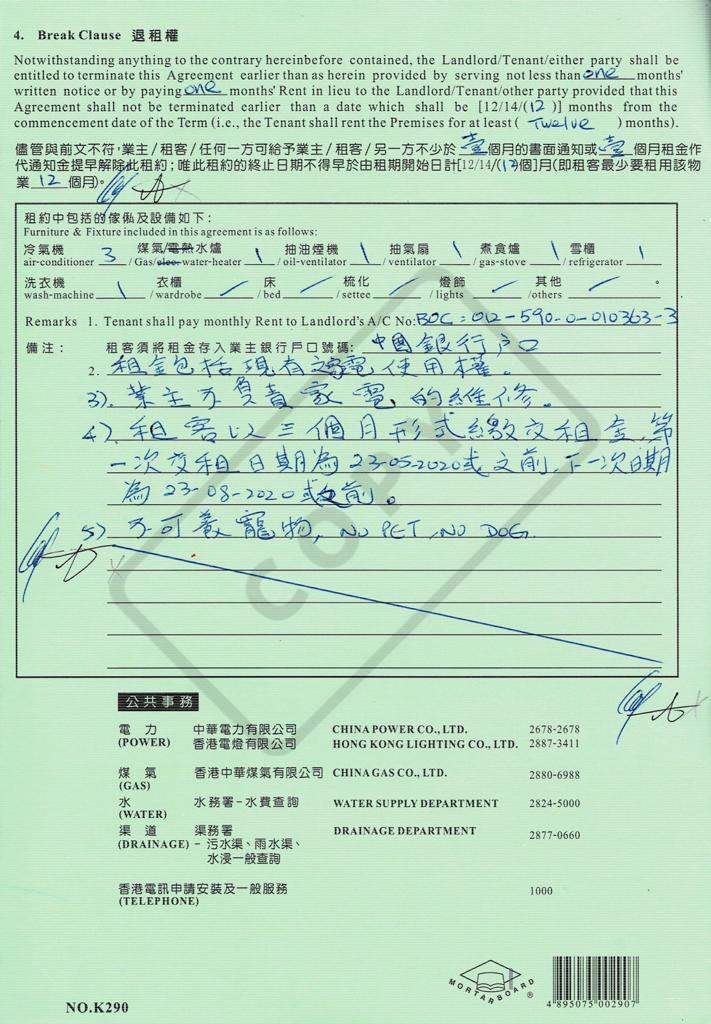 4. Break Clause 退租權
Notwithstanding anything to the contrary hereinbefore contained, the Landlord/Tenant/either party shall be
entitled to terminate this Agreement earlier than as herein provided by serving not less than one months'
written notice or by paying one months' Rent in lieu to the Landlord/Tenant/other party provided that this
Agreement shall not be terminated earlier than a date which shall be [12/14/(12)] months from the
commencement date of the Term (i.e., the Tenant shall rent the Premises for at least ( Twelve ) months).
儘管與前文不符，業主／租客／任何一方可給予業主／租客／另一方不少於 壹 個月的書面通知或 壹 個月租金作
代通知金提早解除此租約；唯此租約的終止日期不得早於由租期開始日計[12/14/(12)個]月(即租客最少要租用該物
業 12 個月)。
租約中包括的傢俬及設備如下：
Furniture & Fixture included in this agreement is as follows:
冷氣機 3 煤氣/電熱水爐 1 抽油煙機 1 抽氣扇 1 煮食爐 1 雪櫃 1
air-conditioner / Gas/elec. water-heater / oil-ventilator / ventilator / gas-stove / refrigerator
洗衣機 1 衣櫃 ✓ 床 ✓ 梳化 ✓ 燈飾 ✓ 其他 ✓ 。
wash-machine / wardrobe / bed / settee / lights / others
Remarks 1. Tenant shall pay monthly Rent to Landlord's A/C No: BOC: 012-590-0-010363-3
備注： 租客須將租金存入業主銀行戶口號碼: 中國銀行戶口
2. 租金包括現有家電使用權。
3). 業主不負責家電的維修。
4). 租客以三個月形式繳交租金,第
一次交租日期為 23-05-2020或之前,下一次日期
為 23-08-2020或之前。
5) 不可養寵物, NO PET, NO DOG.
COPY
公共事務
電力 中華電力有限公司 CHINA POWER CO., LTD. 2678-2678
(POWER) 香港電燈有限公司 HONG KONG LIGHTING CO., LTD. 2887-3411
煤氣 香港中華煤氣有限公司 CHINA GAS CO., LTD. 2880-6988
(GAS)
水 水務署-水費查詢 WATER SUPPLY DEPARTMENT 2824-5000
(WATER)
渠道 渠務署 DRAINAGE DEPARTMENT 2877-0660
(DRAINAGE) - 污水渠、雨水渠、
水浸一般查詢
香港電訊申請安裝及一般服務 1000
(TELEPHONE)
MORTARBOARD ®
4 895075 002907
NO.K290